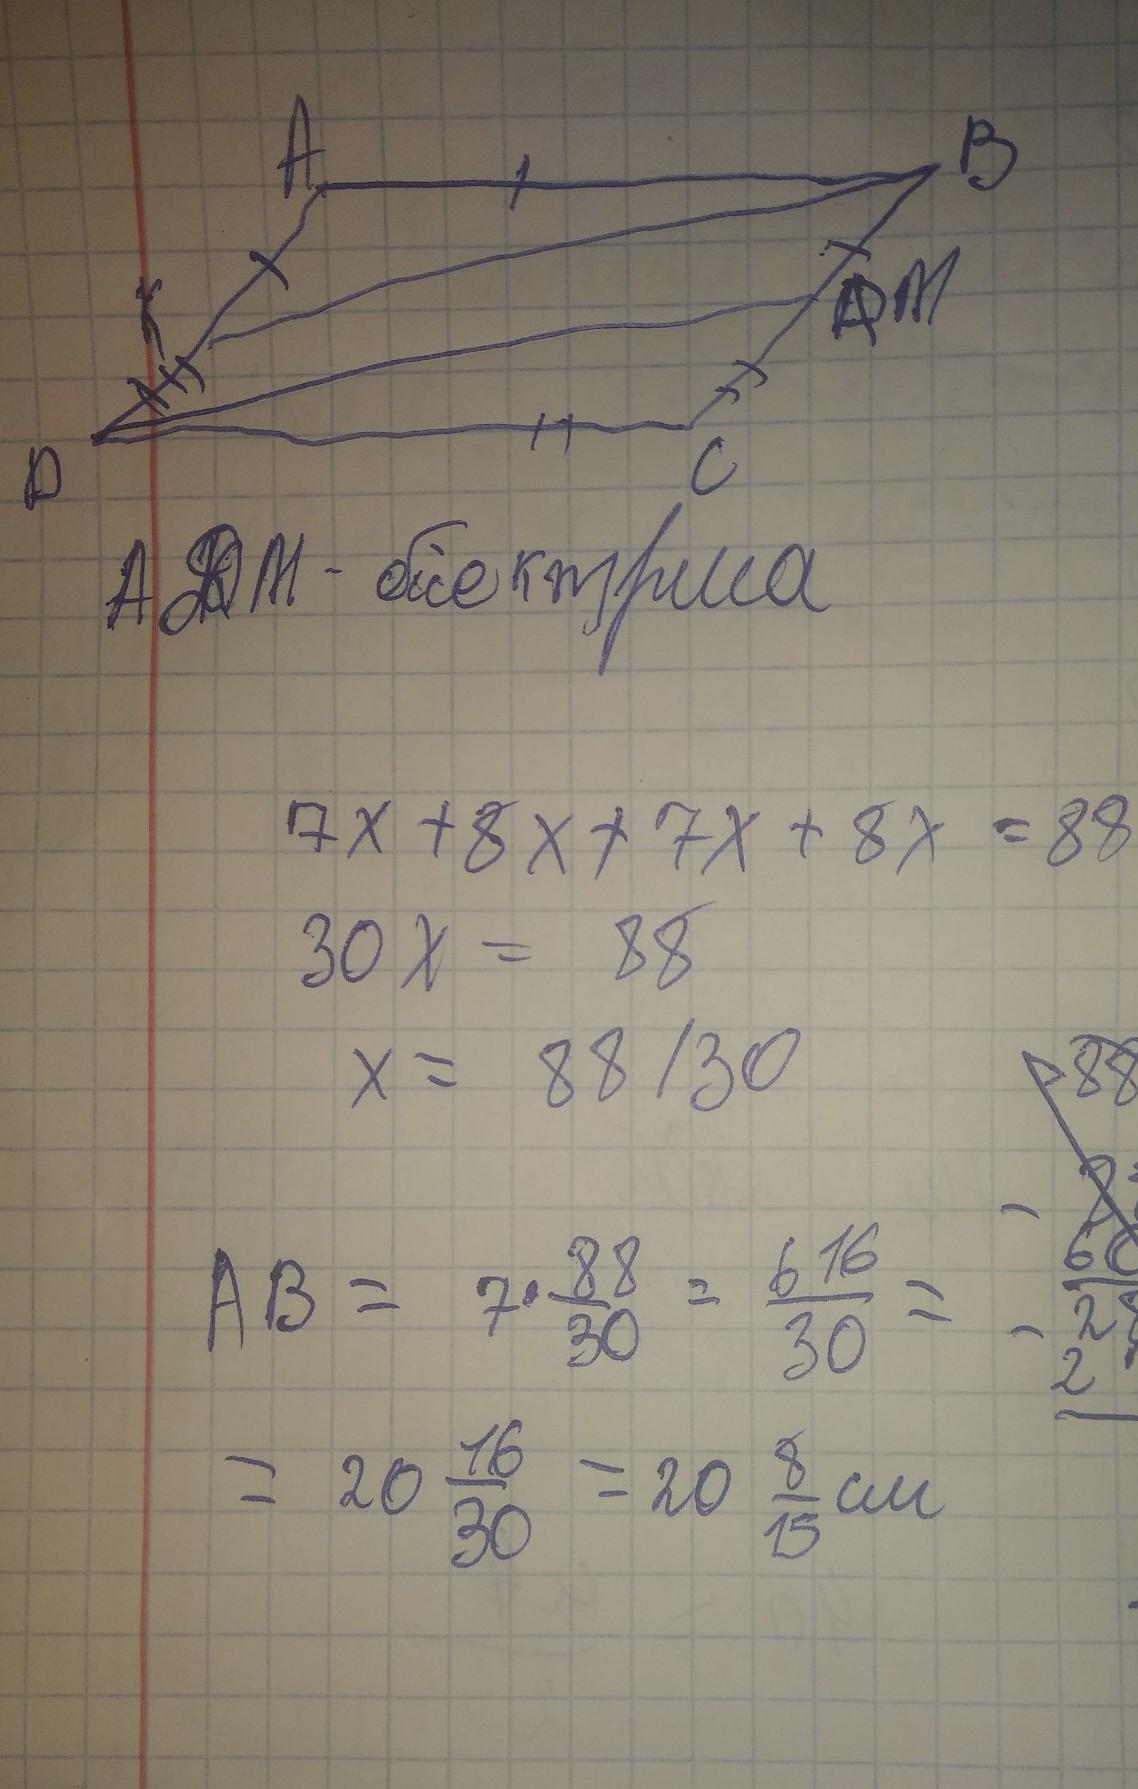 A
B
K
M
D
C
АДМ - бісектриса
7x + 8x + 7x + 8x = 88
30x = 88
x = 88/30
88
AB = 7 · 88/30 = 616/30 =
60
2
= 20 16/30 = 20 8/15 см